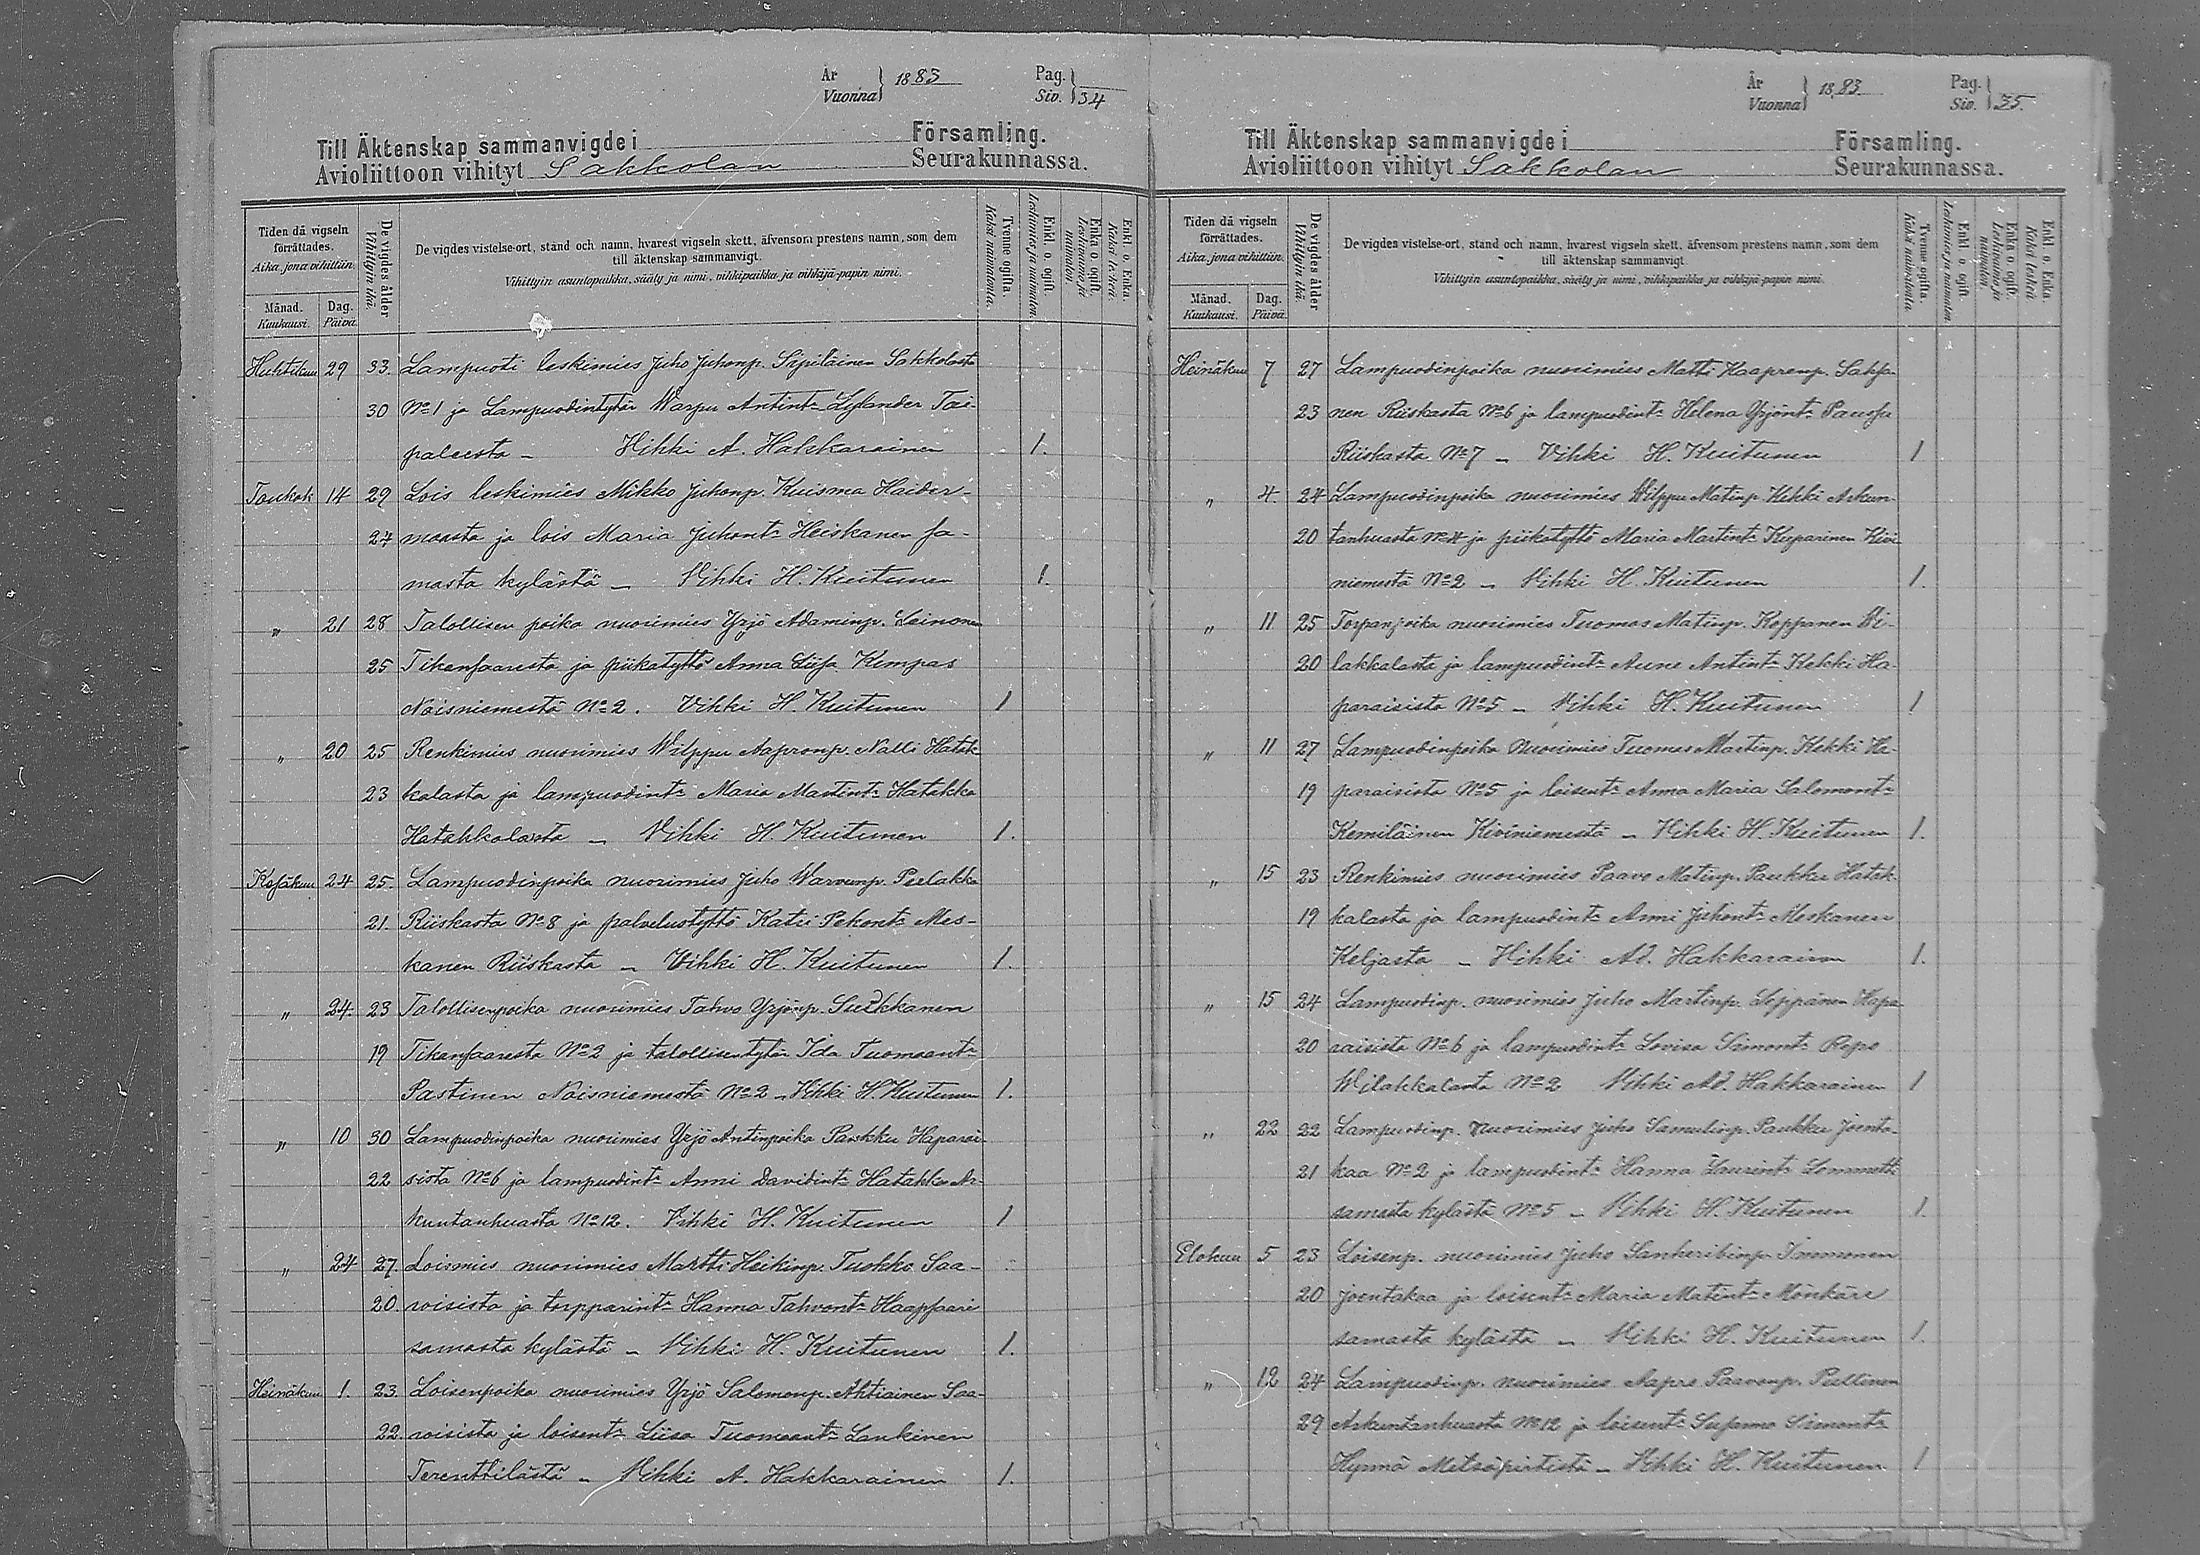 År
Vuonna 1883
Pag.
Siv. 34
Till Äktenskap sammanvigde i Församling.
Avioliittoon vihityt Sakkolan Seurakunnassa.
Tiden då vigseln förrättades.
Aika, jona vihittiin.
Månad.
Kuukausi.
Dag.
Päivä.
De vigdes ålder
Vihittyin ikä.
De vigdes vistelse-ort, stånd och namn, hvarest vigseln skett, äfvensom prestens namn, som dem
till äktenskap sammanvigt.
Vihittyin asuntopaikka, sääty ja nimi, vihkipaikka ja vihkijä-papin nimi.
Tvenne ogifta.
Kaksi naimatonta.
Enkl. o. ogift.
Leskimies ja naimaton.
Enka o. ogift.
Leskivaimo ja naimaton.
Enkl. o. Enka.
Kaksi leskeä.
Huhtikuu 29 33. Lampuoti leskimies Juho Juhonp. Sipiläinen Sakkolasta
30 No 1 ja Lampuodintytär Warpu Antint. Lylander Tai-
paleesta – Vihki A. Hakkarainen 1.
Toukok 14 29 Lois leskimies Mikko Juhonp. Kuisma Haider-
24 maasta ja lois Maria Juhont. Heiskanen sa-
masta kylästä – Vihki H. Kuitunen 1.
" 21 28 Talollisen poika nuorimies Yrjö Adaminp. Leinonen
25 Tikansaaresta ja piikatyttö Anna Liisa Kempas
Noisniemestä No 2. Vihki H. Kuitunen 1
" 20 25 Renkimies nuorimies Wilppu Aapronp. Nalli Hatak-
23 kalasta ja lampuodint. Maria Martint. Hatakka
Hatakkalasta – Vihki H Kuitunen 1.
Kesäkuu 24 25. Lampuodinpoika nuorimies Juho Warvunp. Peelakka
21. Riiskasta No 8 ja palvelustyttö Katri Pekont. Mes-
kanen Riiskasta – Vihki H. Kuitunen 1.
" 24. 23 Talollisenpoika nuorimies Tahvo Yrjönp. Suikkanen
19 Tikansaaresta No 2 ja talollisentytär Ida Tuomaant.
Pastinen Noisniemestä No 2 – Vihki H. Kuitunen 1.
" 10 30 Lampuodinpoika nuorimies Yrjö Antinpoika Paukku Haparai-
22 sista No 6 ja lampuodint. Anni Davidint. Hatakka Ar-
kuntanhuasta No 12. Vihki H. Kuitunen 1
" 24 27. Loismies nuorimies Martti Heikinp. Tuokko Saa-
20. roisista ja torpparint. Hanna Tahvont. Haapsaari
samasta kylästä – Vihki H. Kuitunen 1.
Heinäkuu 1. 23. Loisenpoika nuorimies Yrjö Salomonp. Ahtiainen Saa-
22. roisista ja loisent. Liisa Tuomaant. Lankinen
Terenttilästä – Vihki A. Hakkarainen 1.
År
Vuonna 1883
Pag.
Siv. 35.
Till Äktenskap sammanvigde i Församling.
Avioliittoon vihityt Sakkolan Seurakunnassa.
Tiden då vigseln förrättades.
Aika, jona vihittiin.
Månad.
Kuukausi.
Dag.
Päivä.
De vigdes ålder
Vihittyin ikä.
De vigdes vistelse-ort, stånd och namn, hvarest vigseln skett, äfvensom prestens namn, som dem
till äktenskap sammanvigt.
Vihittyin asuntopaikka, sääty ja nimi, vihkipaikka ja vihkijä-papin nimi.
Tvenne ogifta.
Kaksi naimatonta.
Enkl. o. ogift.
Leskimies ja naimaton.
Enka o. ogift.
Leskivaimo ja naimaton.
Enkl. o. Enka.
Kaksi leskeä.
Heinäkuu 7 27 Lampuodinpoika nuorimies Matti Kaapronp.
23 nen Riiskasta No 6 ja lampuodint. Helena Yrjönt. Paussu
Riiskasta No 7 – Vihki H. Kuitunen 1
" 4. 24 Lampuodinpoika nuorimies Wilppu Matinp. Kekki Arkun-
20 tanhuasta No 4 ja piikatyttö Maria Martint. Kuparinen Kivi
niemestä No 2 – Vihki H. Kuitunen 1.
" 11 25 Torpanpoika nuorimies Tuomas Matinp. Koppanen Wi-
20 lakkalasta ja lampuodint. Aune Antint. Kekki Ha-
paraisista No 5 – Vihki H. Kuitunen 1
" 11 27 Lampuodinpoika Nuorimies Tuomas Martinp. Kekki Ha-
19 paraisista No 5 ja loisent. Anna Maria Salomont.
Kemiläinen Kiviniemestä – Vihki H. Kuitunen 1.
" 15 23 Renkimies nuorimies Paavo Matinp. Paukku Hatak-
19 kalasta ja lampuodint. Anni Juhont. Meskanen
Keljasta – Vihki Ad. Hakkarainen 1.
" 15 24 Lampuodinp. nuorimies Juho Martinp. Seppänen Hapa
20 raisista No 6 ja lampuodint. Lovisa Simont. Repo
Wilakkalasta No 2 Vihki Ad. Hakkarainen 1
" 22 22 Lampuodinp. nuorimies Juho Samulinp. Paukku Joenta-
21 kaa No 2 ja lampuodint. Hanna Laurint. Lommetti
samasta kylästä No 5 – Vihki H. Kuitunen 1.
Elokuu 5 23 Loisenp. nuorimies Juho Sankeribinp. Immonen
20 Joentakaa ja loisent. Maria Matint. Mönkäre
samasta kylästä – Vihki H. Kuitunen 1.
" 12 24 Lampuodinp. nuorimies Aapro Paavonp. Pullinen
29 Arkuntanhuasta No 12 ja loisent. Susanna Simont.
Hynnä Metsäpirtistä – Vihki H. Kuitunen 1